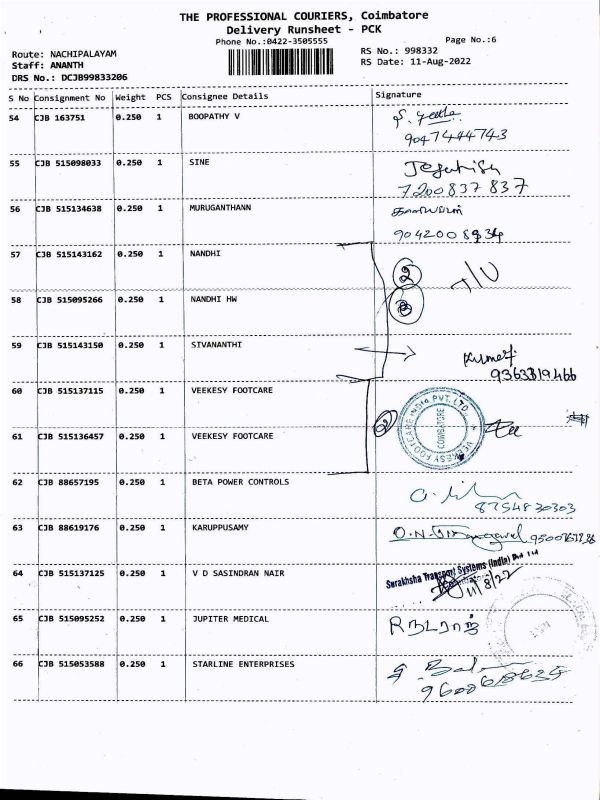 THE PROFESSIONAL COURIERS, Coimbatore
Delivery Runsheet - PCK
Phone No.:0422-3505555
Page No.:6
Route: NACHIPALAYAM
RS No.: 998332
Staff: ANANTH
RS Date: 11-Aug-2022
DRS No.: DCJB99833206
S No Consignment No Weight PCS Consignee Details Signature
54 CJB 163751 0.250 1 BOOPATHY V
9047444743
55 CJB 515098033 0.250 1 SINE
7200837837
56 CJB 515134638 0.250 1 MURUGANTHANN
57 CJB 515143162 0.250 1 NANDHI
2
58 CJB 515095266 0.250 1 NANDHI HW
59 CJB 515143150 0.250 1 SIVANANTHI
9363319466
60 CJB 515137115 0.250 1 VEEKESY FOOTCARE
2
VEEKESY FOOTCARE INDIA PVT. LTD.
COIMBATORE
61 CJB 515136457 0.250 1 VEEKESY FOOTCARE
62 CJB 88657195 0.250 1 BETA POWER CONTROLS
8754830303
63 CJB 88619176 0.250 1 KARUPPUSAMY
64 CJB 515137125 0.250 1 V D SASINDRAN NAIR
Surakhsha Transport Systems (India) Pvt Ltd
11/8/22
65 CJB 515095252 0.250 1 JUPITER MEDICAL
நடராஜ்
66 CJB 515053588 0.250 1 STARLINE ENTERPRISES